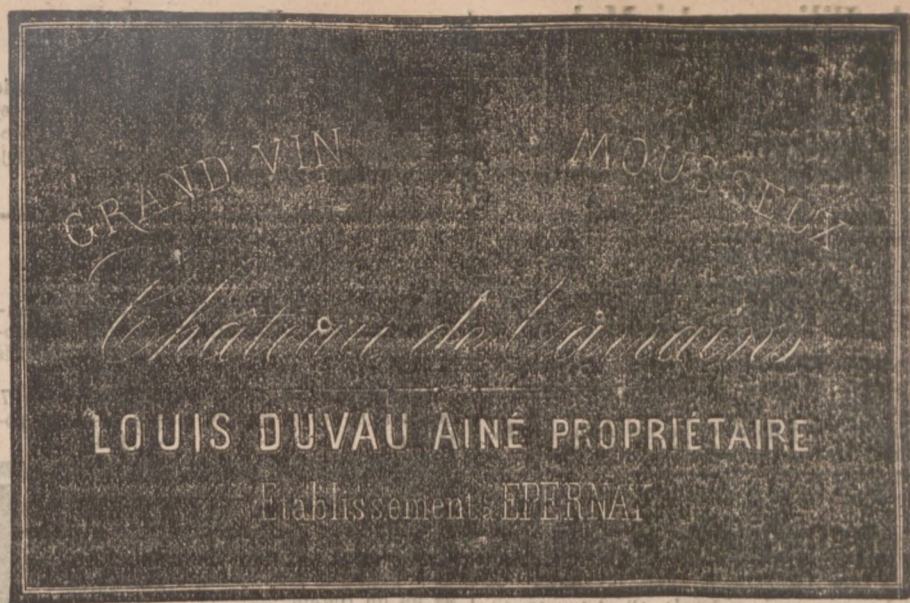 GRAND VIN MOUSSEUX
Château de
LOUIS DUVAU AINÉ PROPRIÉTAIRE
Etablissement: EPERNAY